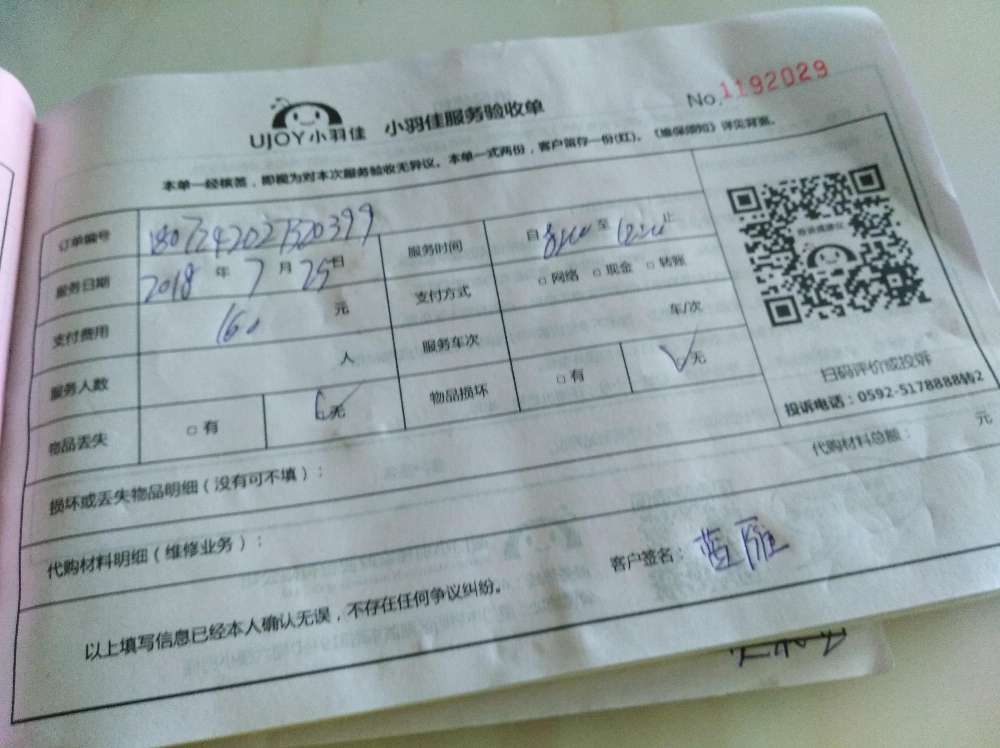 UJOY小羽佳 小羽佳服务验收单 No.1192029
本单一经核签，即视为对本次服务验收无异议。本单一式两份，客户留存一份(红)。《维保须知》详见背面。
订单编号 1807242021320399 服务时间 自 至 止
服务日期 2018年7月25日 支付方式 □网络 □现金 □转账
支付费用 160 元 服务车次 车/次
服务人数 人 物品损坏 □有 □无
物品丢失 □有 □无
扫码评价或投诉
投诉电话：0592-5178888转2
损坏或丢失物品明细（没有可不填）：
代购材料总额： 元
代购材料明细（维修业务）：
以上填写信息已经本人确认无误，不存在任何争议纠纷。
客户签名：